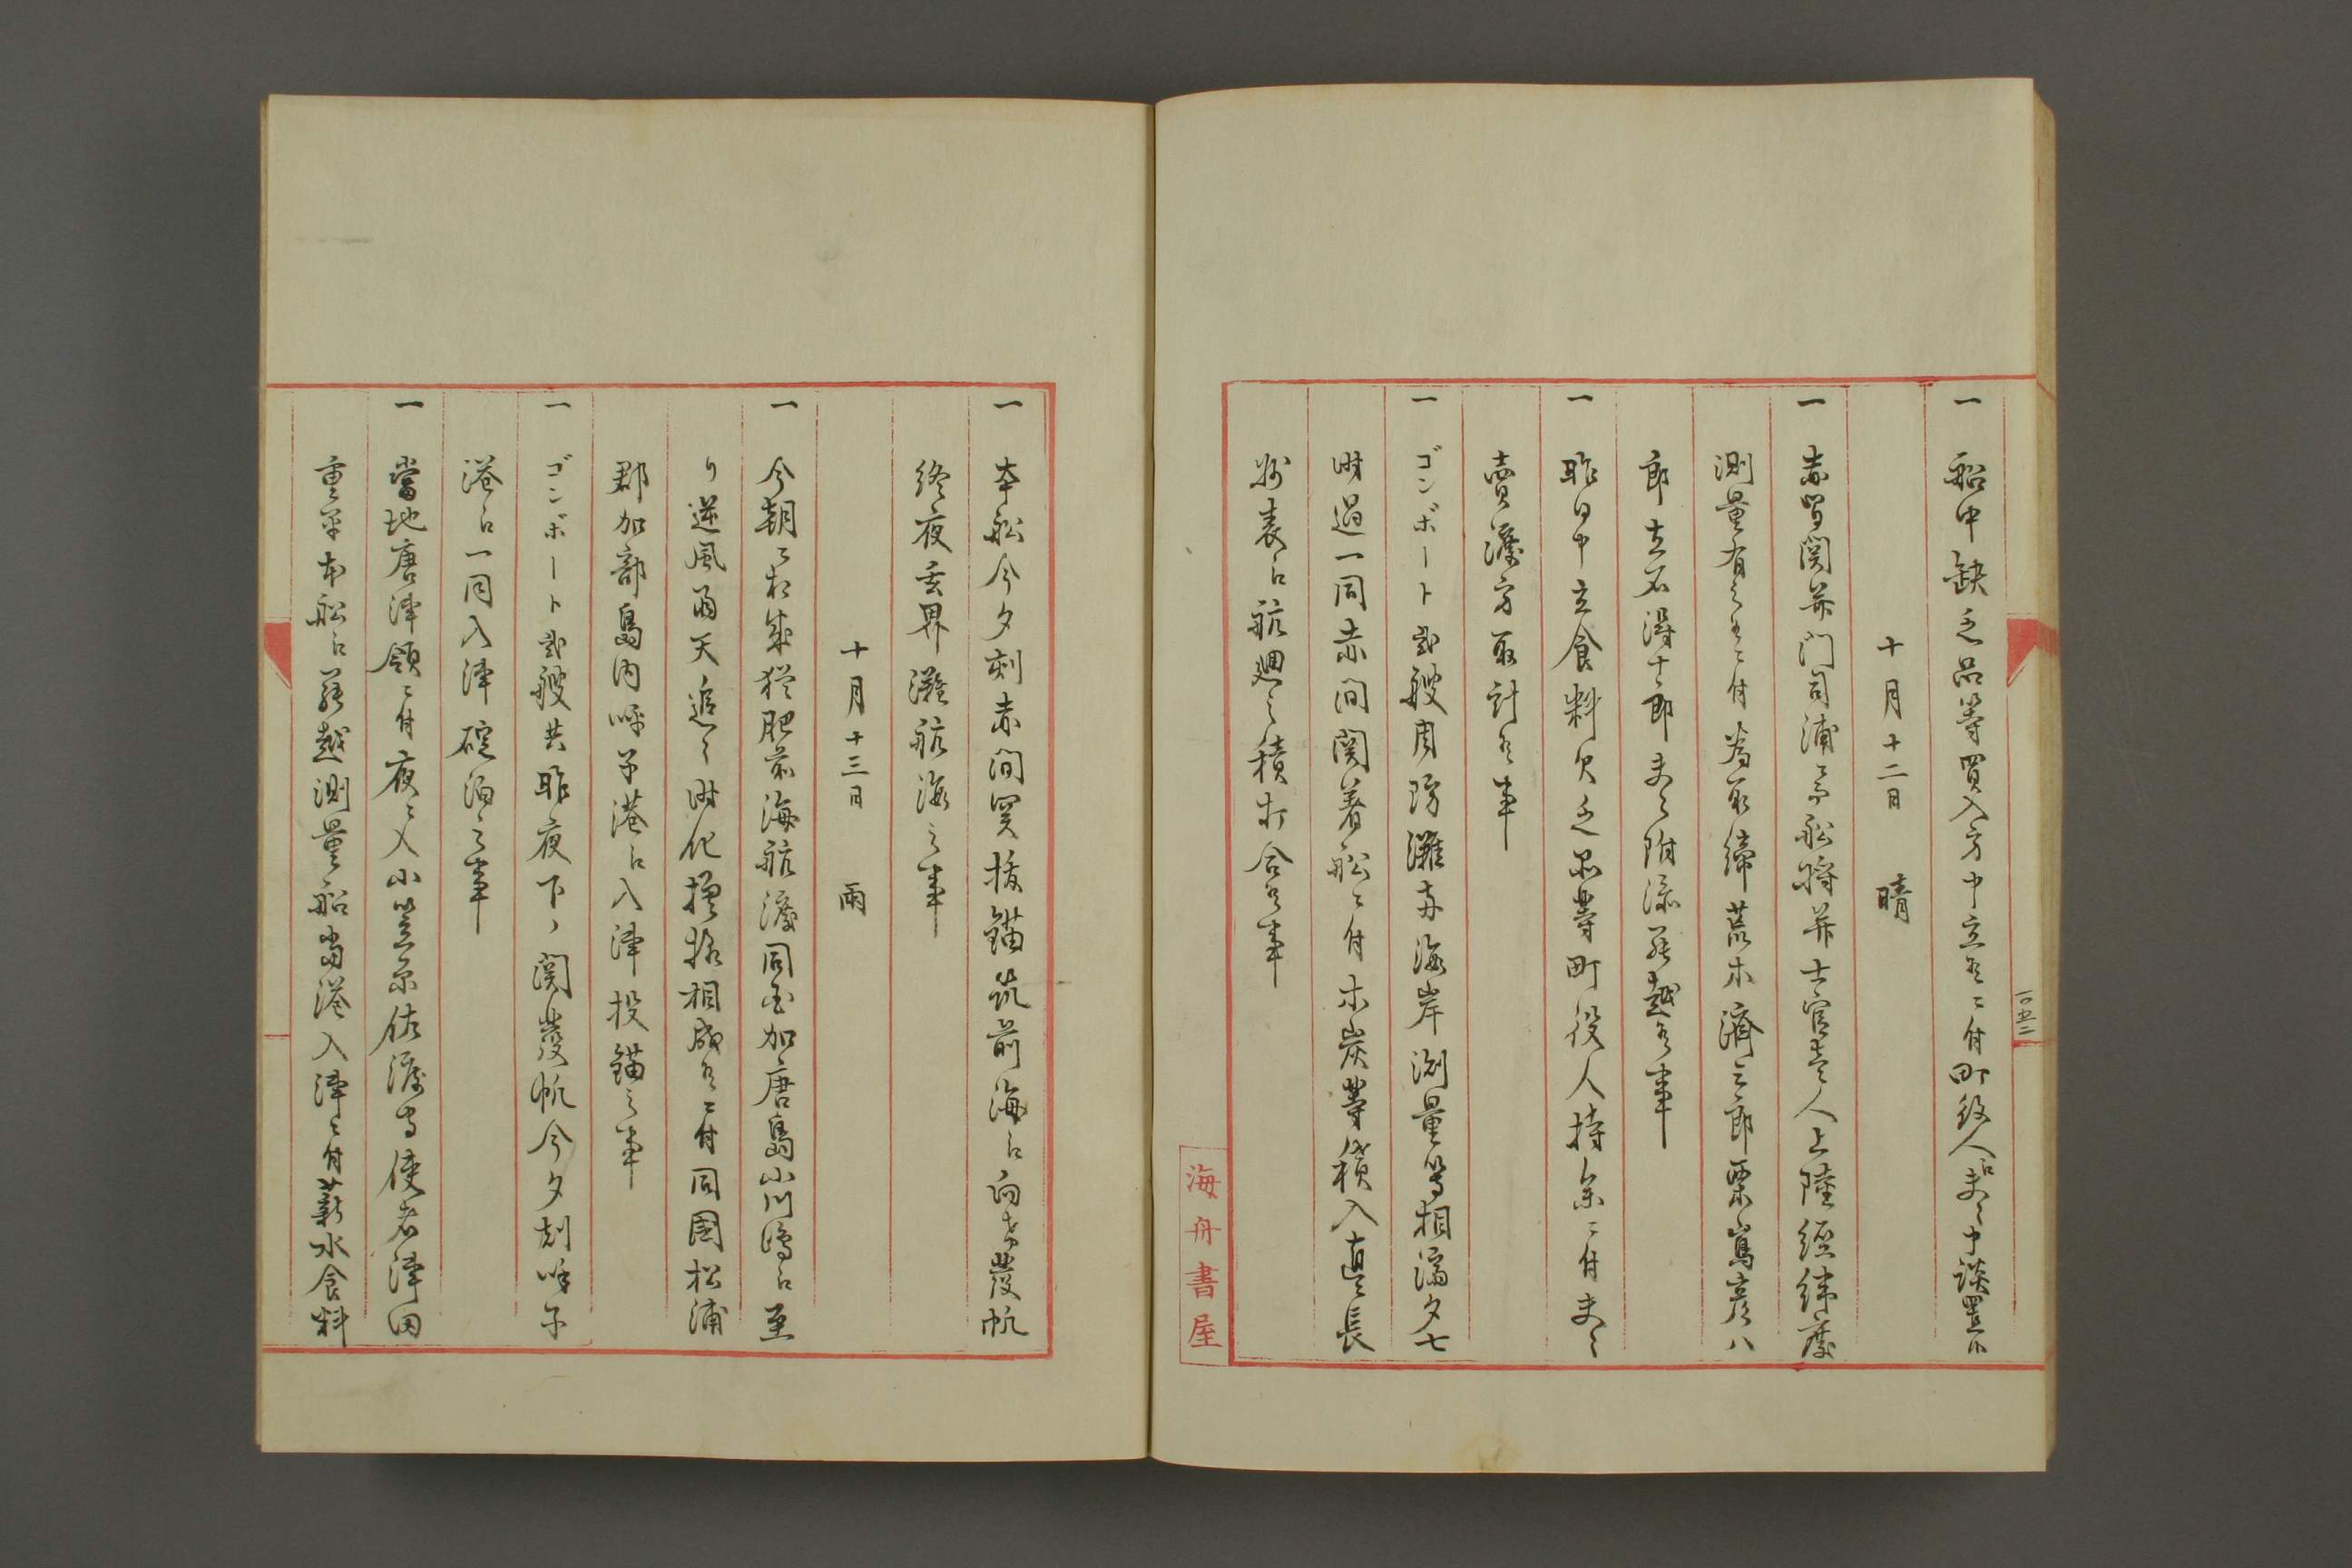 一 船中缺乏品等買入方申立候ニ付町役人江夫々申談置候
十月十二日 晴
一 赤間関并門司浦ニ而船将并士官壱人上陸経緯度
測量有之候ニ付為取締荒木済三郎栗嶌彦八
郎立石得十郎夫々附添罷越候事
一 昨日申立食料欠乏品等町役人持参ニ付夫々
賣渡方取計候事
一 ゴンボート貳艘周防灘并海岸測量等相濟夕七
時過一同赤間関着船ニ付木炭等積入直長
州表江航廻之積打合候事
海舟書屋
一 本船今夕刻赤間関抜錨筑前海江向ケ發帆
終夜玄界灘航海之事
十月十三日 雨
一 今朝ニ相成猶肥前海航渡同国加唐島小川嶋江至
り逆風雨天追々時化模様相成候ニ付同國松浦
郡加部島内呼子港江入津投錨之事
一 ゴンボート貳艘共昨夜下ノ関發帆今夕刻呼子
港江一同入津碇泊之事
一 當地唐津領ニ付夜ニ入小笠原佐渡守使者津田
重平本船江罷越測量船當港入津ニ付薪水食料
一〇五二